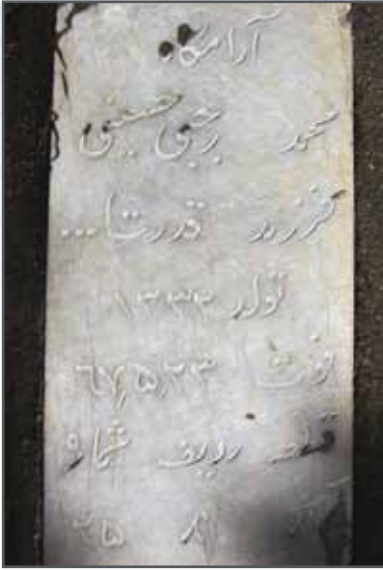 آرامگاه
محمد رجبی حسینی
فرزند قدرت‌ا...
تولد ۱۳۳۲
فوت ۶۷٫۵٫۲۳
قطعه ردیف شماره
۸۱ ۲۵